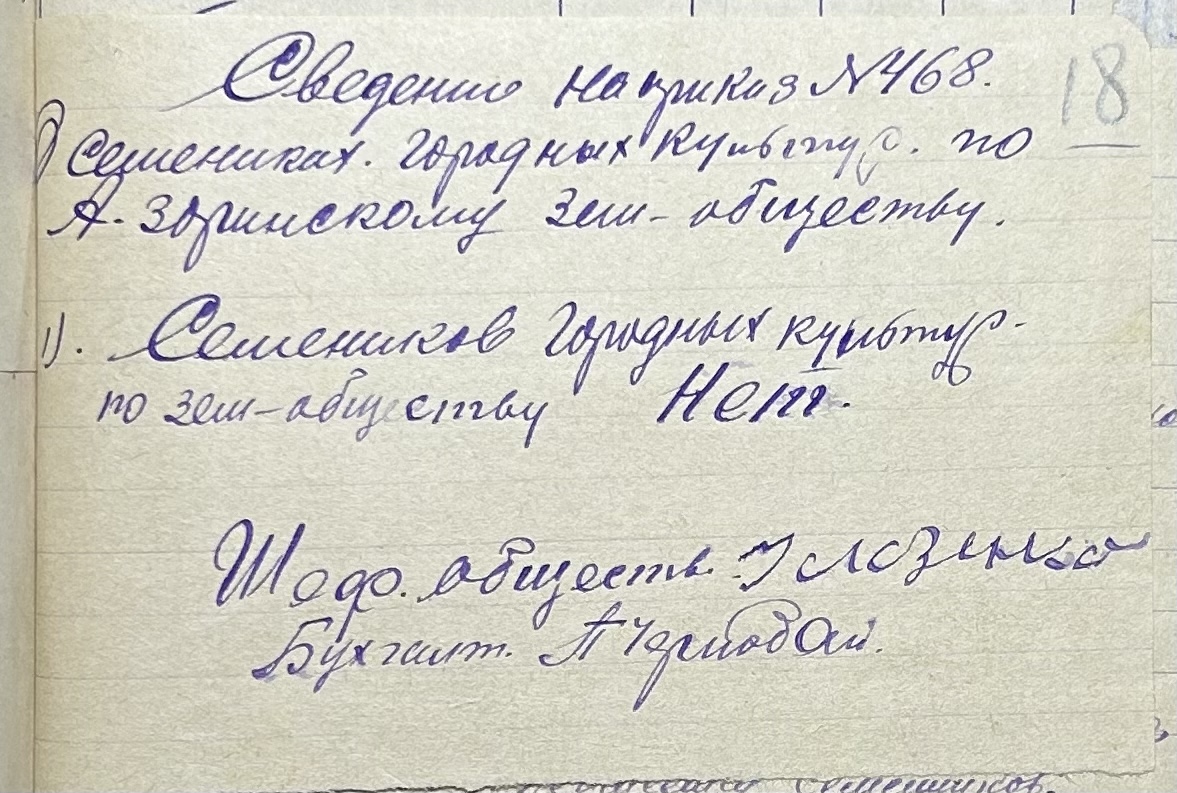 Сведение на приказ №468.
18
О семениках. городных культур. по
А. Зоринскому зем-обществу.
1). Семеников городных культур-
по зем-обществу Нет.
Шеф. обществ.
Бухгалт.
семенников.